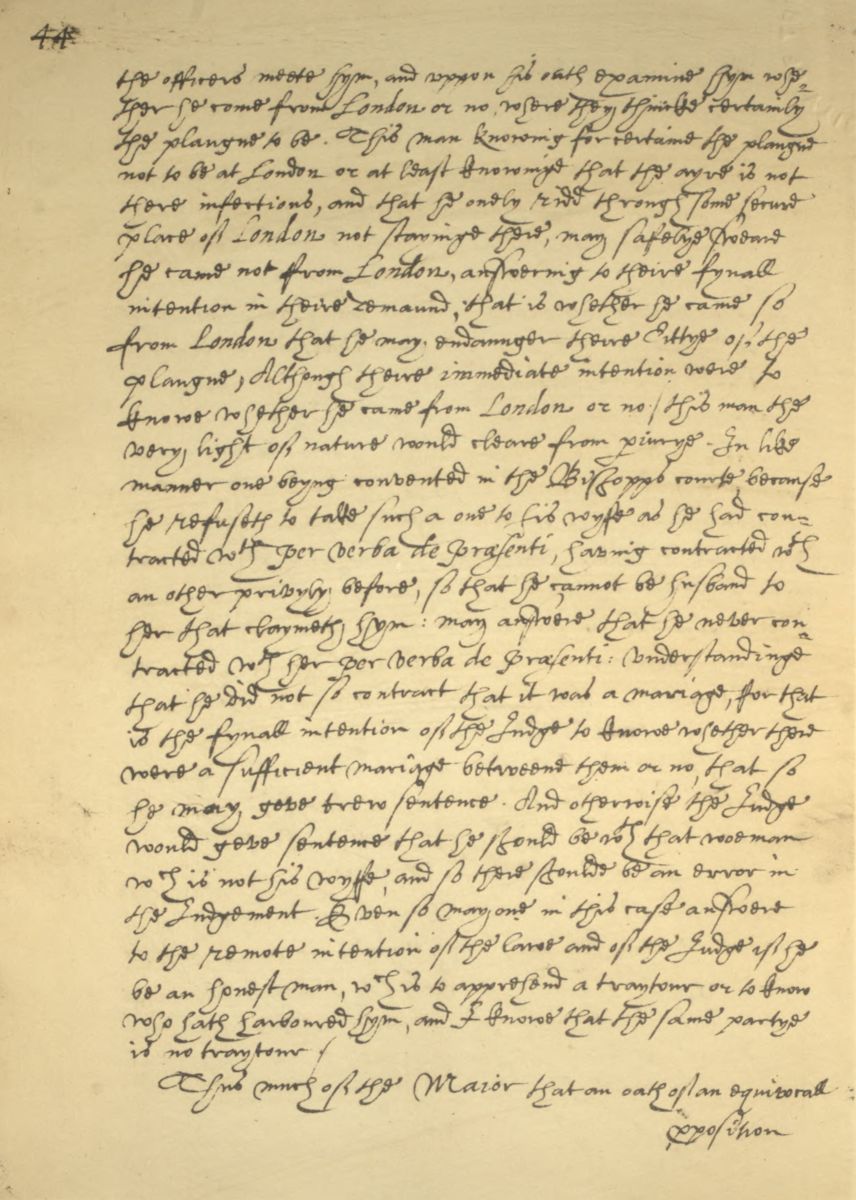 44
the officers meete hym, and vppon his oath examine hym whe-
ther he come from London or no, where they thincke certainly
the plaugue to be. This man knowing for certaine the plaugue
not to be at London or at least knowinge that the ayre is not
there infectious, and that he onely ridd through some secure
place of London not stayinge there, may safelye sweare
he came not ffrom London, answering to theire fynall
intention in theire demaund, that is whether he came so
from London that he may endaunger theire Cittye of the
plaugue, Although theire immediate intention were to
knowe whether he came from London or no / this man the
very light of nature would cleare from piurye. In like
manner one beyng convented in the Bishopps courte, because
he refuseth to take such a one to his wyffe as he had con-
tracted wth per verba de præsenti, having contracted wth
an other privyly before, so that he cannot be husband to
her that claymeth hym: may answere that he never con-
tracted wth her per verba de præsenti: understandinge
that he did not so contract that it was a mariage, ffor that
is the fynall intention of the Judge to knowe whether there
were a sufficient mariage betweene them or no, that so
he may geve trew sentence. And otherwise the Judge
would geve sentence that he should be wth that woeman
wch is not his wyffe, and so there shoulde be an error in
the Judgement. Even so may one in this case answere
to the remote intention of the lawe and of the Judge if he
be an honest man, wch is to apprehend a traytour or to know
who hath harboured hym, and I knowe that the same partye
is no traytour /
Thus much of the Maior that an oath of an equivocall
pposition